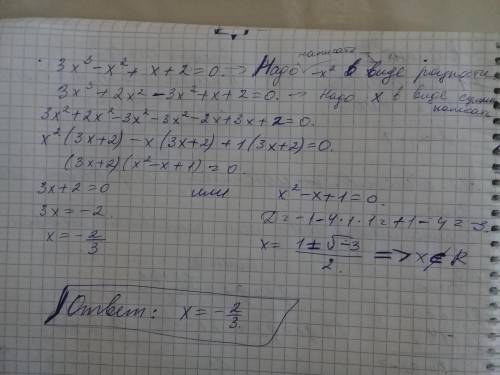 написать
3x³ - x² + x + 2 = 0. → Надо -x² в виде разности
3x³ + 2x² - 3x² + x + 2 = 0. → Надо x в виде суммы написать
3x² + 2x² - 3x² - 3x² - 2x + 3x + 2 = 0.
x² (3x+2) - x (3x+2) + 1 (3x+2) = 0.
(3x+2)(x² - x + 1) = 0.
3x + 2 = 0 или x² - x + 1 = 0.
3x = -2. D = -1 - 4·1·1 = +1 - 4 = -3.
x = -2/3 x = (1 ± √-3)/2. => x ∉ R
Ответ: x = -2/3.